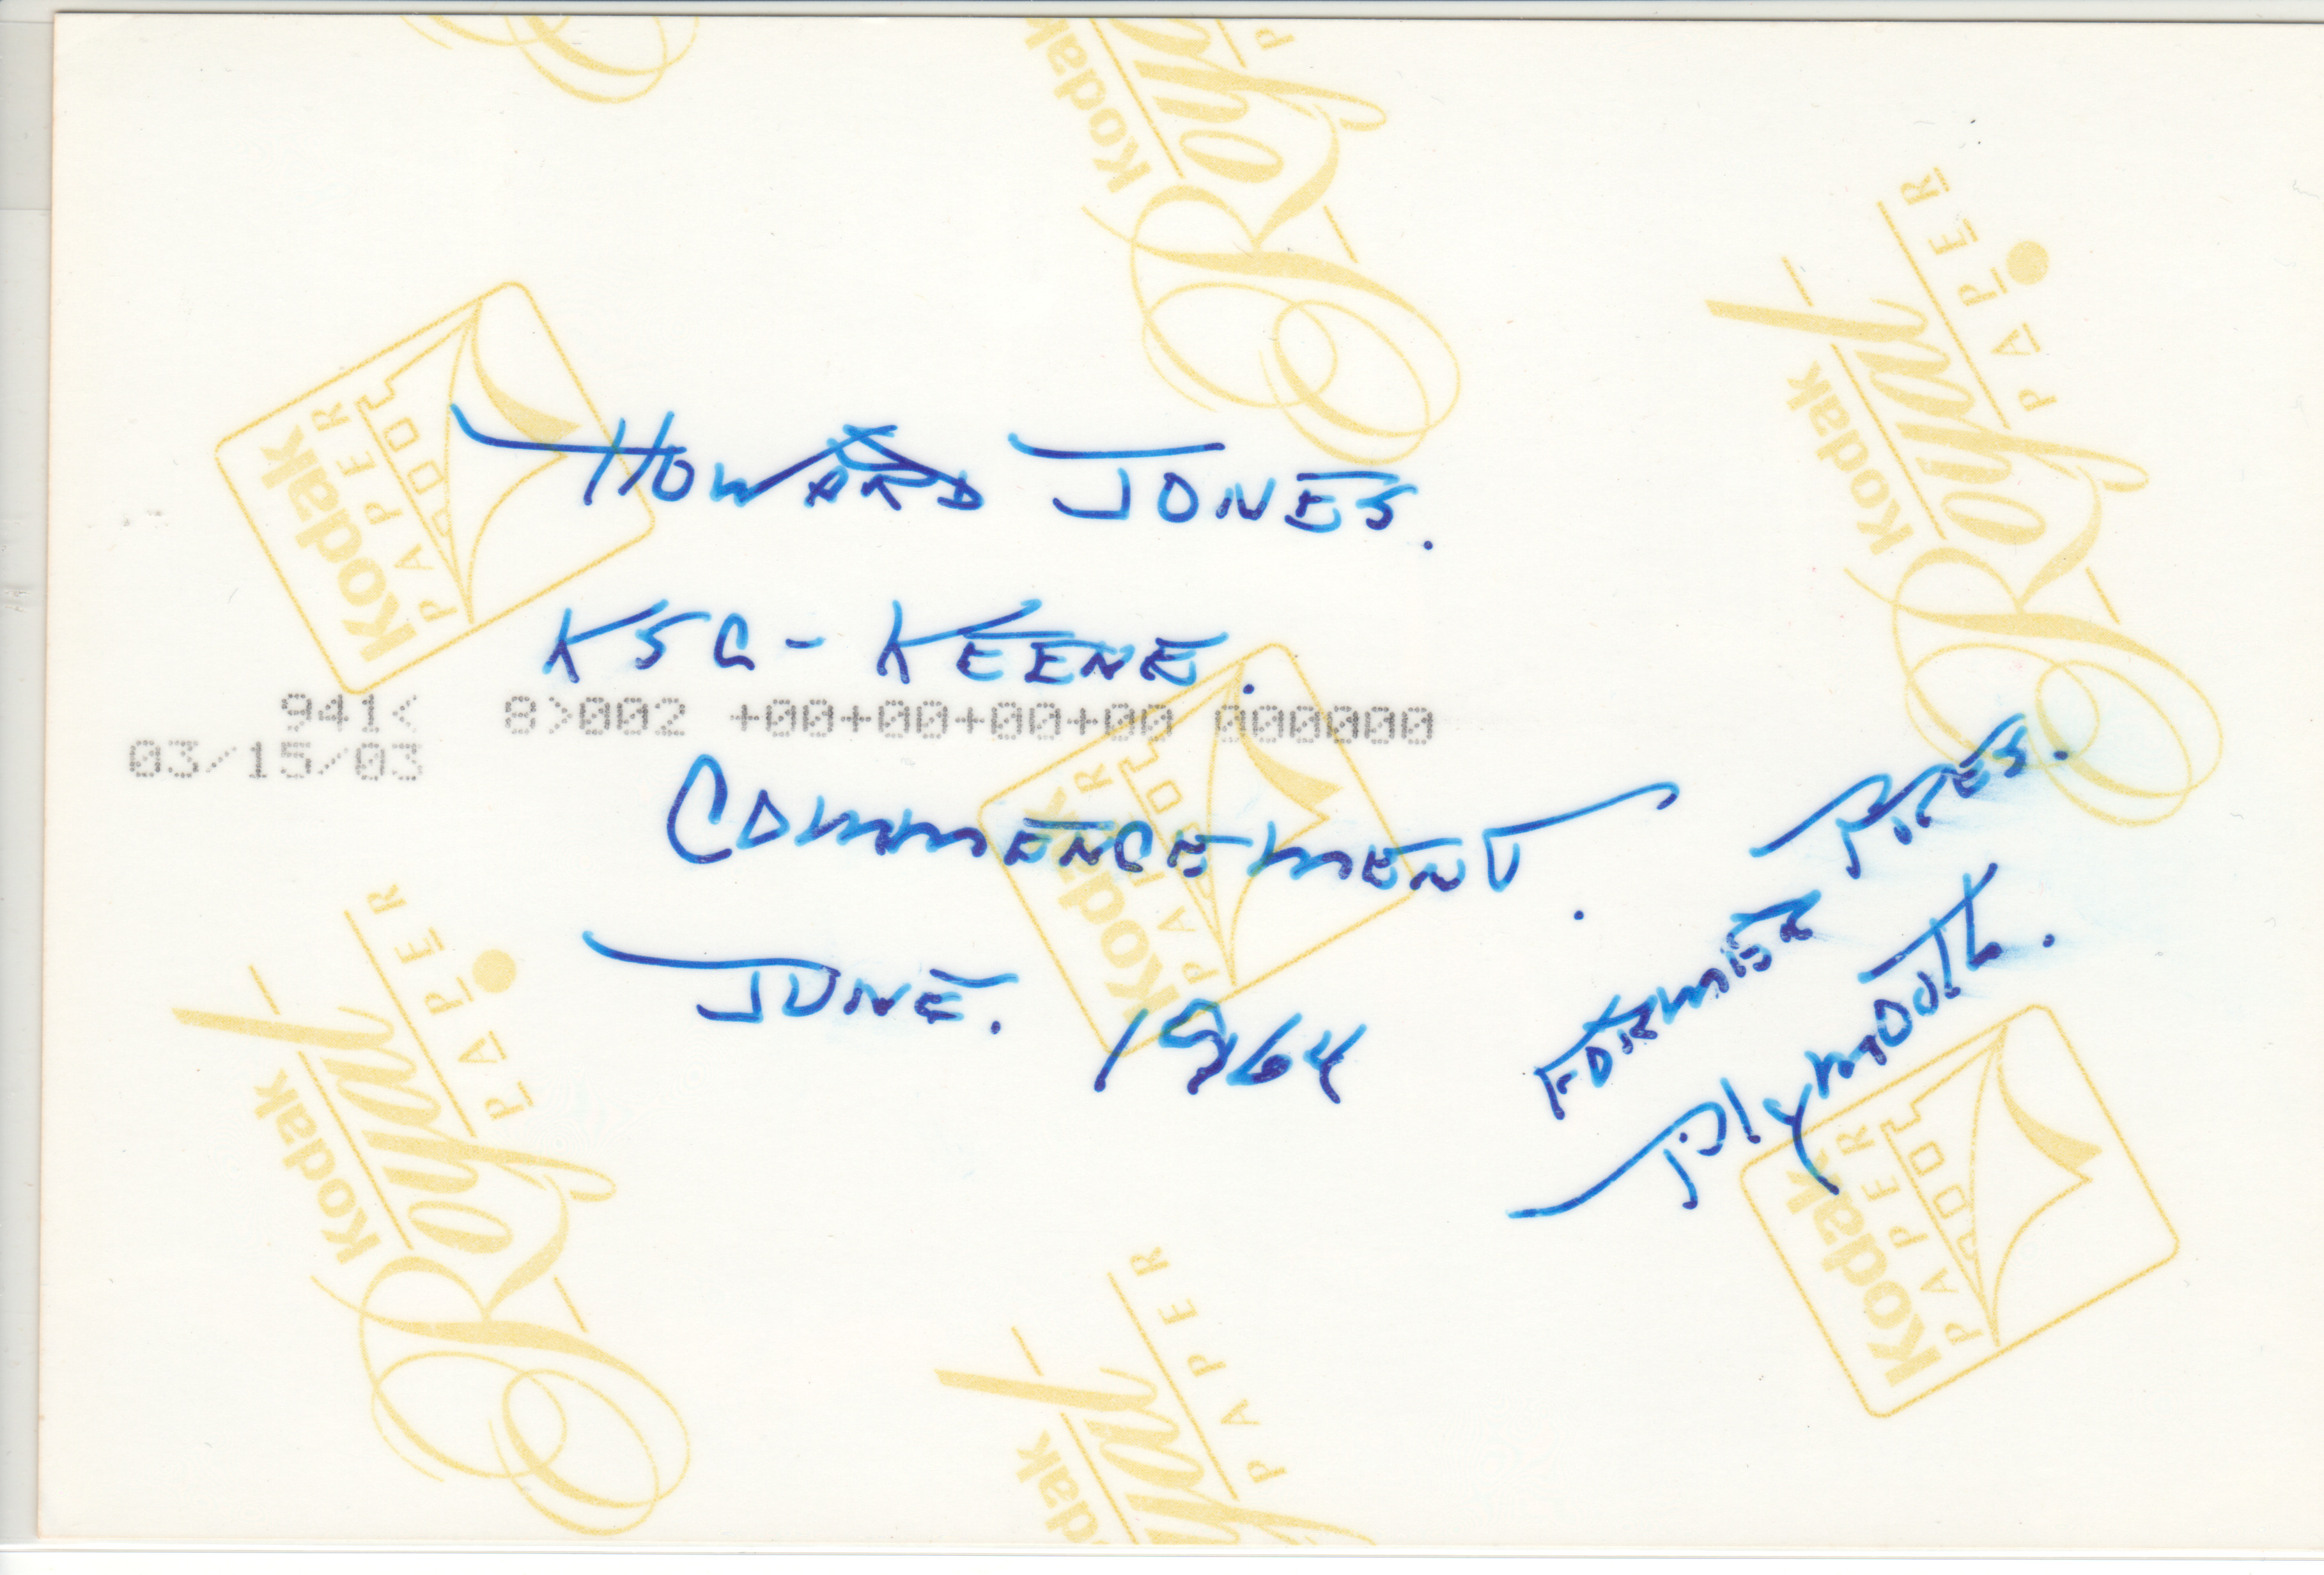 Howard Jones.
KSC - Keene.
941< 8>002 +00+00+00+00 000000
03/15/03
Commencement.
June. 1964
Former Pres.
Plymouth.
Kodak
PAPER
Kodak
Royal
PAPER
Kodak
Royal
PAPER
Kodak
PAPER
Kodak
Royal
PAPER
Kodak
PAPER
Royal
PAPER